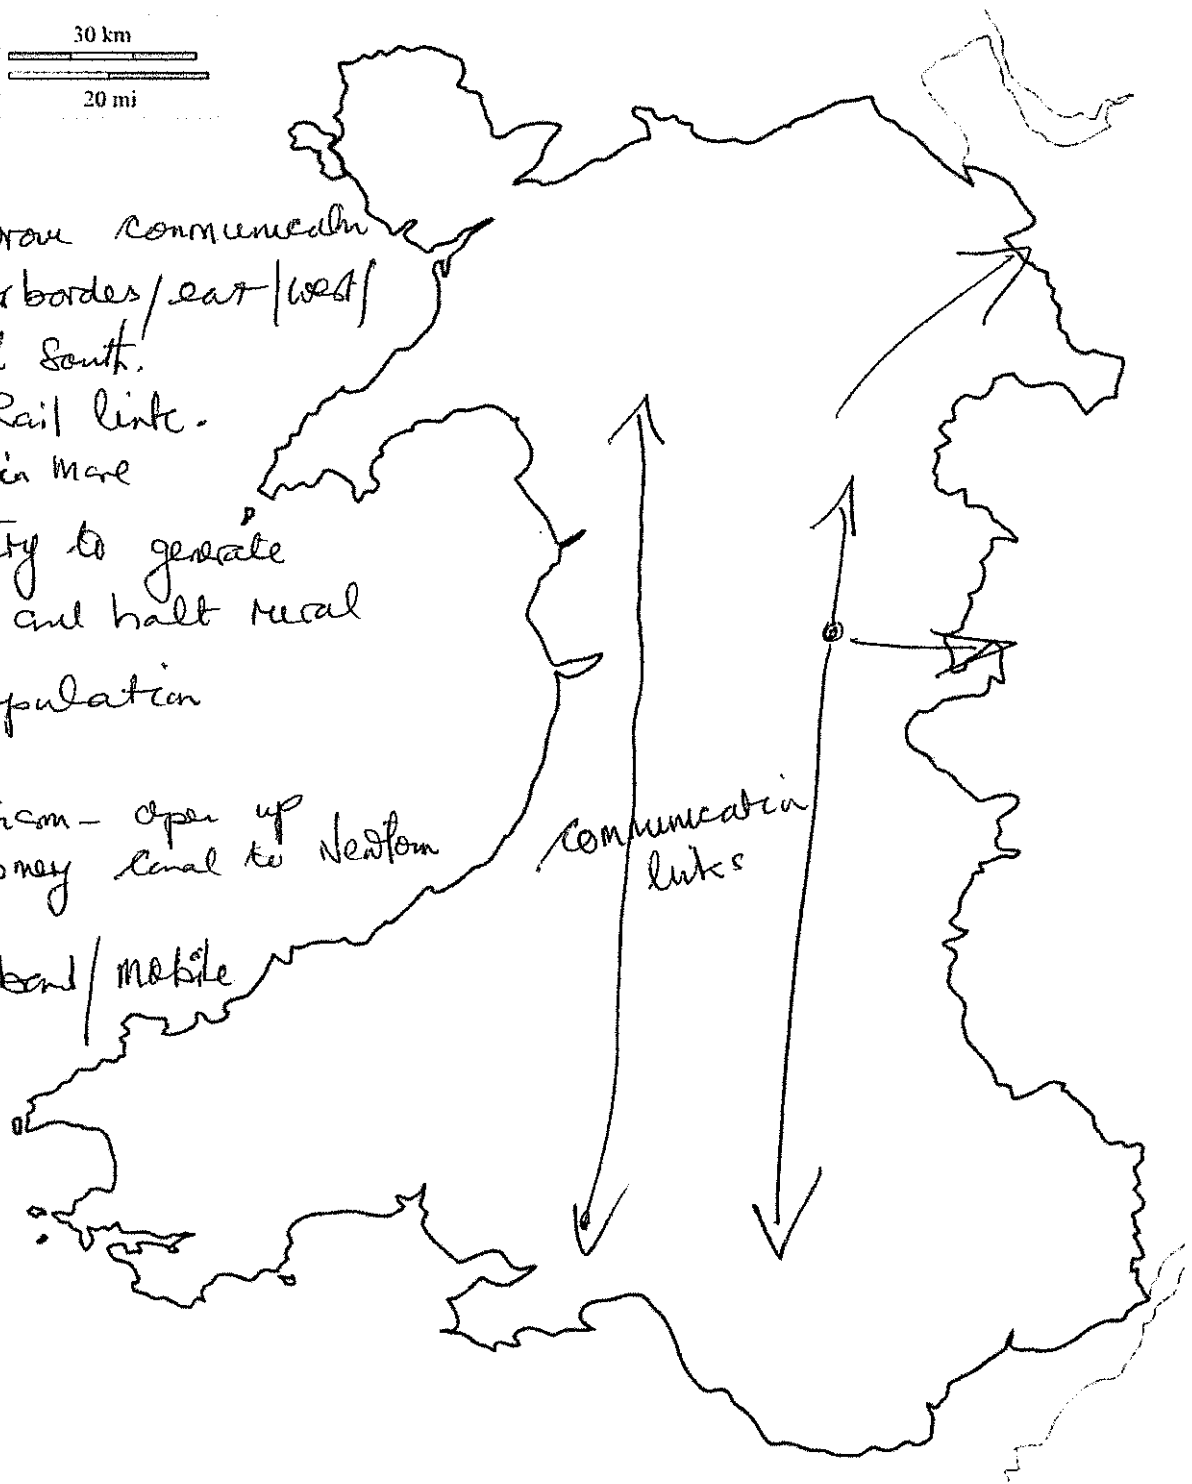 30 km
20 mi
rove communicatn
r bordes/east/west/
d South.
Rail link.
in more
try to generate
and halt rural
pulation
ism - open up
omery Canal to Newtown
band/mobile
communication
links